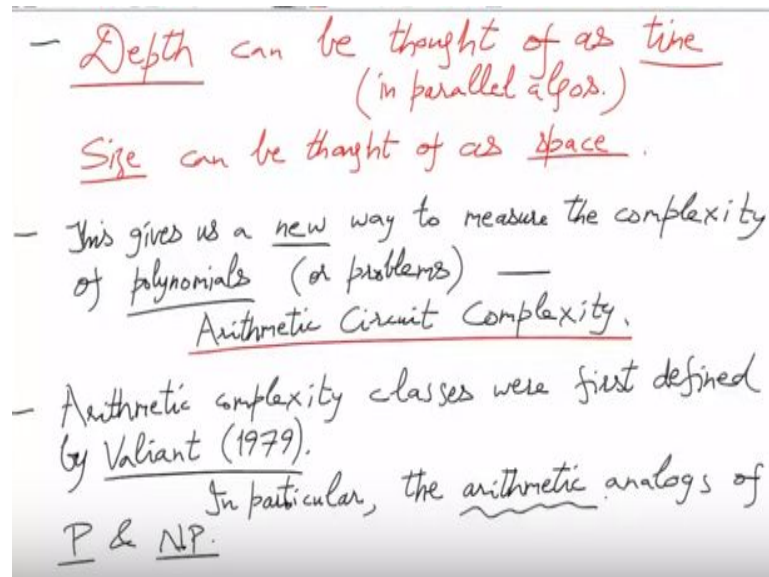 - Depth can be thought of as time
(in parallel algos.)
Size can be thought of as space.
- This gives us a new way to measure the complexity
of polynomials (or problems) —
Arithmetic Circuit Complexity.
- Arithmetic complexity classes were first defined
by Valiant (1979).
In particular, the arithmetic analogs of
P & NP.